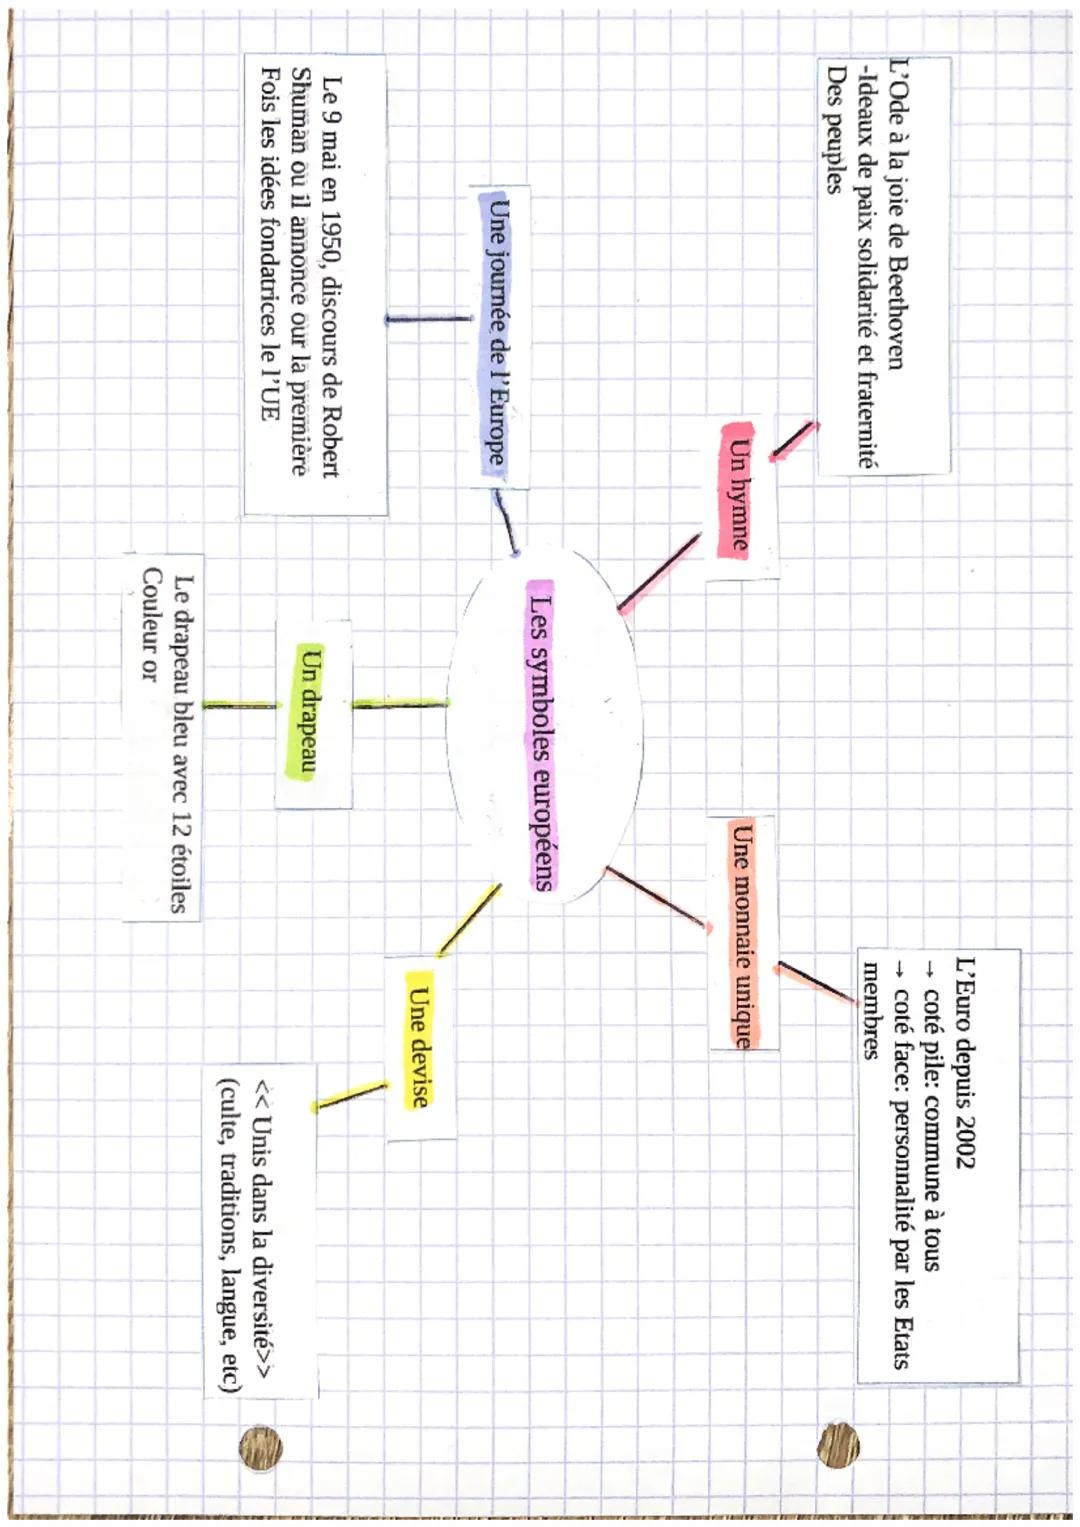 L'Ode à la joie de Beethoven
-Ideaux de paix solidarité et fraternité
Des peuples
Un hymne
L'Euro depuis 2002
→ coté pile: commune à tous
→ coté face: personnalité par les Etats
membres
Une monnaie unique
Les symboles européens
Une journée de l'Europe
Le 9 mai en 1950, discours de Robert
Shuman ou il annonce our la première
Fois les idées fondatrices le l'UE
Un drapeau
Le drapeau bleu avec 12 étoiles
Couleur or
Une devise
<< Unis dans la diversité>>
(culte, traditions, langue, etc)